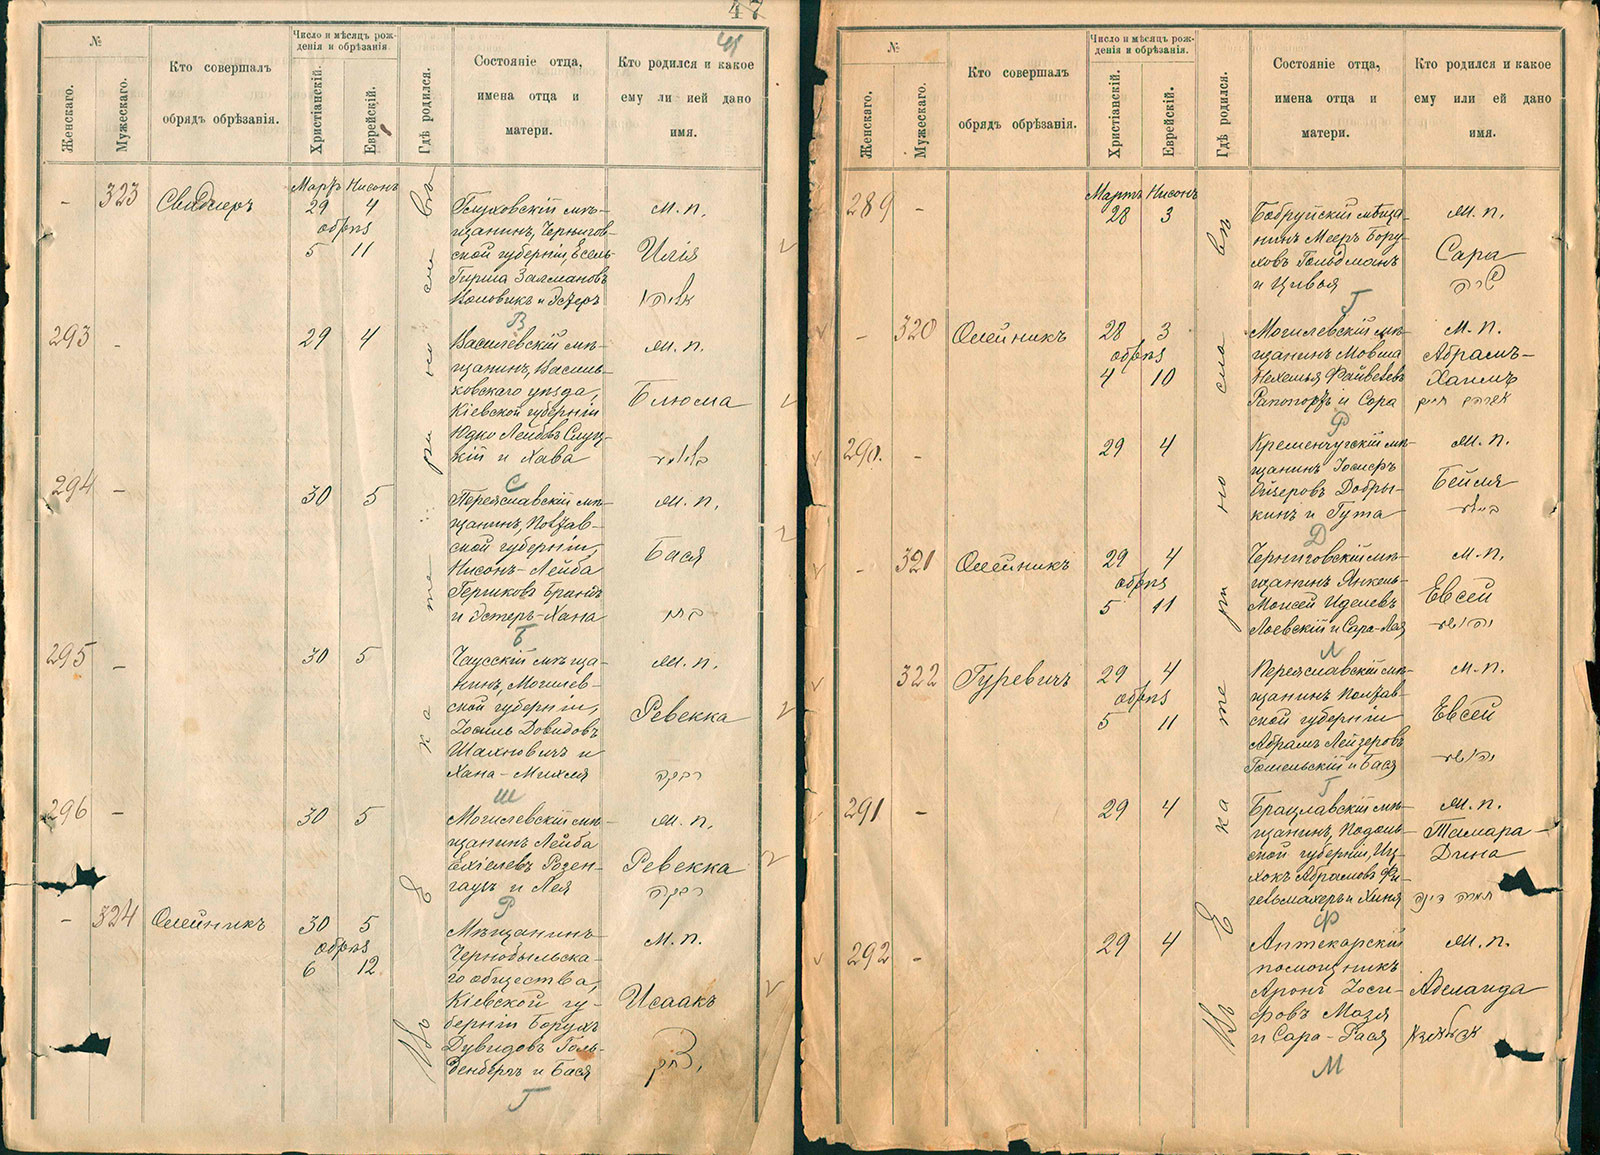 47
№
Женскаго.
Мужескаго.
Кто совершалъ
обрядъ обрѣзанія.
Число и мѣсяцъ рож-
денія и обрѣзанія
Христіанскій.
Еврейскій.
Гдѣ родился.
Состояніе отца,
имена отца и
матери.
Кто родился и какое
ему ли ией дано
имя.
Въ Екатеринославѣ
323
Свидлеръ
Мартъ Нисонъ
29 4
обрѣз
5 11
Глуховскій мѣ-
щанинъ, Чернигов-
ской губерніи, Есель-
Гирша Залмановъ
и Эстеръ
м. п.
Илія
В
293
29 4
Василевскій мѣ-
щанинъ, Василь-
ковскаго уѣзда,
Кіевской губерніи
Юдко Лейбовъ Слуц-
кій и Хава
м. п.
Блюма
С
294
30 5
Переяславскій мѣ-
щанинъ, Полтав-
ской губерніи,
Нисонъ-Лейба
Гершковъ
и Эстеръ-Хана
м. п.
Бася
Б
295
30 5
Чаусскій мѣща-
нинъ, Могилев-
ской губерніи,
Іосиль Довидовъ
Шахновичъ и
Хана-Михля
м. п.
Ревекка
רבקה
Ш
296
30 5
Могилевскій мѣ-
щанинъ Лейба
Ехіелевъ Розен-
гаузъ и Лея
м. п.
Ревекка
רבקה
Р
324
Олейникъ
30 5
обрѣз
6 12
Мѣщанинъ
Чернобыльска-
го общества,
Кіевской гу-
берніи Борухъ
Дувидовъ Голь-
денбергъ и Бася
м. п.
Исаакъ
יצחק
Г
№
Женскаго.
Мужескаго.
Кто совершалъ
обрядъ обрѣзанія.
Число и мѣсяцъ рож-
денія и обрѣзанія.
Христіанскій.
Еврейскій.
Гдѣ родился.
Состояніе отца,
имена отца и
матери.
Кто родился и какое
ему или ей дано
имя.
Въ Екатеринославѣ
289
Мартъ Нисонъ
28 3
Бобруйскій мѣща-
нинъ Мееръ Бору-
ховъ Гольдманъ
и Цивья
м. п.
Сара
שרה
Г
320
Олейникъ
28 3
обрѣз
4 10
Могилевскій мѣ-
щанинъ Мовша
Нехемья Файвелевъ
Рапопортъ и Сора
м. п.
Абрамъ-
Хаимъ
אברהם חיים
Р
290.
29 4
Кременчугскій мѣ-
щанинъ Іосифъ
Добры-
кинъ и Гута
м. п.
Бейля
ביילא
Д
321
Олейникъ
29 4
обрѣз
5 11
Черниговскій мѣ-
щанинъ Янкель-
Моисей Иделевъ
Лоевскій и Сара-Лея
м. п.
Евсей
Л
322
Гуревичъ
29 4
обрѣз
5 11
Переяславскій мѣ-
щанинъ Полтав-
ской губерніи
Абрамъ Лейзеровъ
Гомельскій и Бася
м. п.
Евсей
Г
291
29 4
Брацлавскій мѣ-
щанинъ, Подоль-
ской губерніи, Иц-
хокъ Абрамовъ Фи-
гельмахеръ и Хиня
м. п.
Тамара-
Дина
תמרה דינה
Ф
292
29 4
Аптекарскій
помощникъ
Аронъ Іоси-
фовъ Мазя
и Сара-Рася
м. п.
Аделаида
М